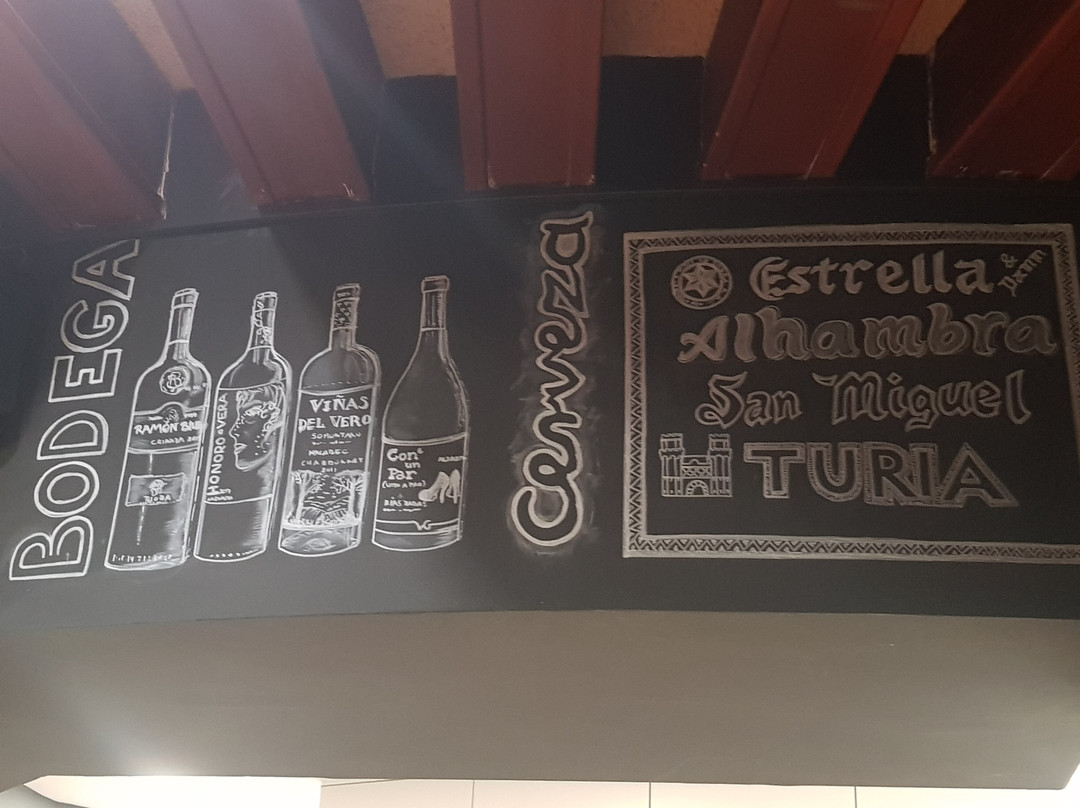 BODEGA
RAMÓN
RIOJA
HONORO VERA
VIÑAS
DEL VERO
SOMONTANO
MACABEO
CHARDONNAY
Con
un
Par
RÍAS BAIXAS
VG
Cerveza
Estrella
&
Alhambra
San Miguel
TURIA